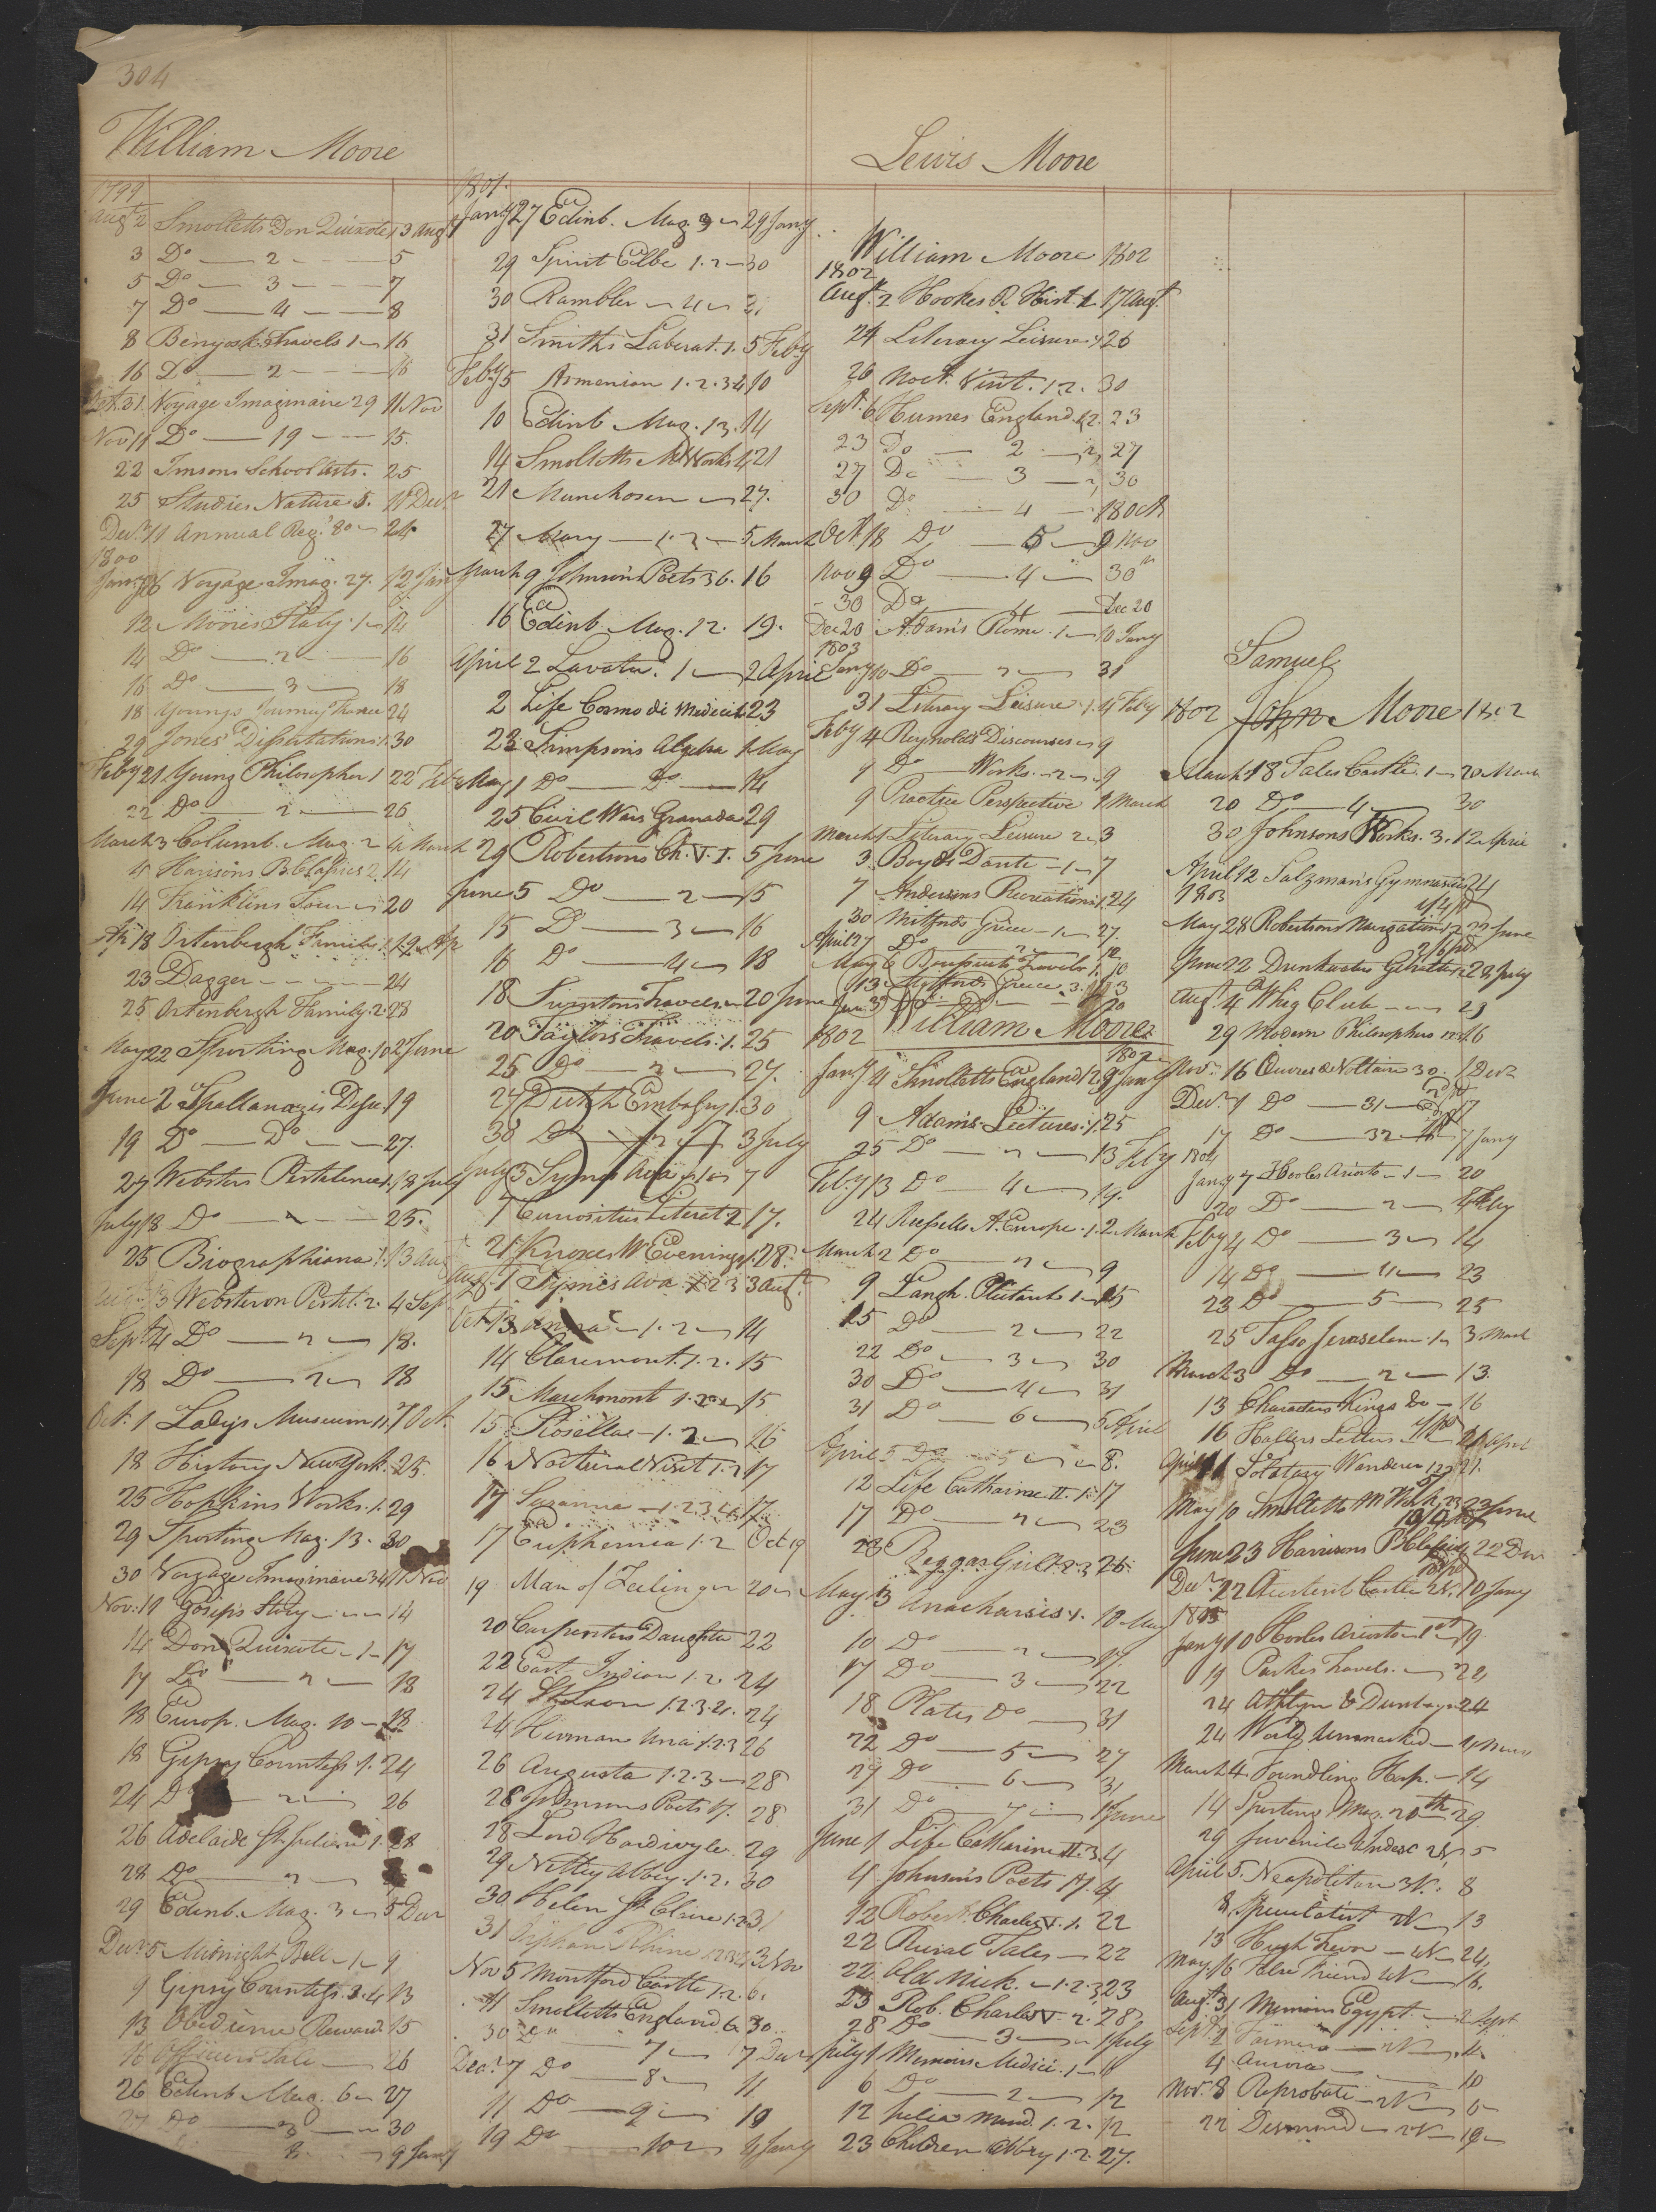 304
William Moore
1799
Augt 2 Smolletts Don Quixote 1 3 Augt
3 Do — 2 — 5
5 Do — 3 — 7
7 Do — 4 — 8
8 Benyosk. Travels 1 — 16
16 Do — 2 — 16
Oct. 31 Voyage Imaginaire 29 11 Nov
Nov 11 Do — 19 — 15.
22 Imsons School arts. 25
25 Studies Nature 5. 11 Decr
Decr 11 Annual Reg. 80 — 24
1800
Jany 6 Voyage Imag. 27. 12 Jan
12 Moores Italy. 1 — 14
14 Do — 2 — 16
16 Do — 3 — 18
18 Youngs Journey France 24
29 Jones' Dissertations 1. 30
Feby 21 Young Philosopher 1 22 Feb
22 Do — 2 — 26
March 3 Columb. Mag. 2 4 March
4 Harisons B. Classics 2. 14
14 Franklins Tour — 20
Ap 18 Ortenbergh Family 1. 19 Ap
23 Dagger — 24
25 Ortenbergh Family. 2. 28
May 22 Sporting Mag. 10 2 June
June 2 Spallanazis Diss. 19
19 Do — Do — 27.
27 Websters Pestilence 1. 18 July
July 18 Do — 2 — 25.
25 Biographiana 1. 13 Aug
13 Webster on Pestil. 2. 4 Sep.
Sept. 4 Do — 2 — 18.
18 Do — 2 — 18
Oct. 1 Ladys Museum 11. 7 Oct.
18 History New York. 25.
25 Hopkins Works. 1. 29
29 Sporting Mag. 13. 30
30 Voyage Imaginaire 34 11 Nov
Nov. 11 Gosips Story — 14
14 Don Quixote — 1 — 17
17 Do — 2 — 18
18 Europ. Mag. 10 — 18
18 Gipsy Countess 1. 24
24 Do — 2 — 26
26 Adelaide St. Julien 1. 28
28 Do — 2
29 Edinb. Mag. 3 — 5 Decr
Decr 5 Midnight Bell — 1 — 9
9 Gipsy Countess. 3. 4 13
13 Obedience Reward. 15
16 Officers Tale — 26
26 Edinb Mag. 6 — 27
27 Do — 3 — 30
9 Jany
1801.
Jany 27 Edinb. Mag. 9 — 29 Jany
29 Spirit Elbe 1. 2 — 30
30 Rambler — 4 — 31
31 Smiths Laborat. 1. 5 Feby
Feby 5 Armenian 1. 2. 3 4 10
10 Edinb Mag. 13. 14
14 Smolletts M Works 4 21
21 Munchosen — 27.
27 Mary — 1. 2 — 5 March
March 9 Johnson Poets 36. 16
16 Edinb Mag. 12. 19.
April 2 Lavater. 1 — 2 April
2 Life Cosmo di Medici 1. 23
23 Simpsons Algebra 1 May
May 1 Do — Do — 14
25 Civil Wars Granada 29
29 Robertsons Ch. V. 1. 5 June
June 5 Do — 2 — 15
15 Do — 3 — 16
16 Do — 4 — 18
18 Swintons Travels — 20 June
20 Taylors Travels. 1. 25
25 Do — 2 — 27.
27 Dutch Embassy 1. 30
30 Do — 2 — 3 July
July 3 Symes Ava 1 — 7
7 Curiosities Literat. 2 17.
21 Knoxes W Evenings 1. 28.
Aug. 1 Symes Ava 1 2 3 3 Augt.
Oct. 13 Anna — 1. 2 — 14
14 Claremont. 1. 2. 15
15 Marchmont 1. 2 — 15
15 Rosella — 1. 2 — 26
16 Nocturnal Visit 1. 2 17
17 Suzanna — 1. 2 3 4. 17
17 Euphemia 1. 2 Oct 19
19 Man of Feeling — 20 —
20 Carpenters Daughter 22
22 East Indian 1. 2. 24
24 St. Leon 1. 2. 3. 4. 24
24 Herman Una 1. 2. 3 26
26 Augusta 1. 2. 3 — 28
28 Johnsons Poets 17. 28
28 Lord Hardivyle. 29
29 Netley Abbey. 1. 2. 30
30 Helen St Clair 1. 2 31
31 Orphan Rhine 1 2 3 4 3 Nov
Nov 5 Montford Castle 1. 2. 6.
11 Smolletts England. 6 30.
30 Do — 7 — 7 Decr
Decr. 7 Do — 8 — 11.
11 Do — 9 — 19
19 Do — 10 — 4 Jany
Lewis Moore
William Moore 1802
1802
Augt. 2 Hookes R. Hist. 1 17 Augt.
24 Literary Leisure 1 26
26 Noct. Visit. 1. 2. 30
Sept. 6 Humes England. 1. 23
23 Do — 2 — 27
27 Do — 3 — 30
30 Do — 4 — 18 Oct
Oct. 18 Do — 5 — 9 Nov
Nov 9 Do — 4 — 30th
30 Do — 4 — Dec 20
Dec 20 Adams Rome. 1 — 10 Jany
1803
Jany 10 Do — 2 — 31
31 Literary Leisure. 1. 4 Feby
Feby 4 Reynolds Discourses — 9
9 Do Works. — 2 — 9
9 Practice Perspective 1 March
March 1 Literary Leisure 2. 3
3 Boyds Dante — 1 — 7
7 Andersons Recreations 1. 24
30 Mitfords Greece — 1 — 27
April 27 Do — 2 — 12
May 6 Travels 1. 10
13 Mitfords Greece. 3. 13
20
William Moore
1802
1802
Jany 4 Smolletts England 12 9 Jany
9 Adams Lectures. 1. 25
25 Do — 2 — 13 Feby
Feby 13 Do — 4 — 19.
24 Russells A. Europe. 1. 2 March
March 2 Do — 2 — 9
9 Langh. Plutarch 1 — 15
15 Do — 2 — 22
22 Do — 3 — 30
30 Do — 4 — 31
31 Do — 6 — 5 April
April 5 Do — 5 — 8.
12 Life Catharine II. 1. 17
17 Do — 2 — 23
23 Beggar Girl 1. 2. 3 26.
May 3 Anacharsis 1. 10 May
10 Do — 2 — 17.
17 Do — 3 — 22
18 Plates Do — 31
22 Do — 5 — 27
27 Do — 6 — 31
31 Do — 7 — 1 June
June 1 Life Catharine II. 3. 4
4 Johnsons Poets 17. 4
12 Robert. Charles V. 1. 22
22 Rural Tales — 22
22 Old Nick. — 1. 2. 3 23
23 Rob. Charles V. 2. 28.
28 Do — 3 — 1 July
July 1 Memoirs Medici. 1 — 6
6 Do — 2 — 12
12 Julia Mand. 1. 2. 12
23 Children Abbey 1. 2. 27.
Samuel
1802 John Moore 1802
March 18 Tales Castle. 1 — 20 March
20 Do — 4 — 30
30 Johnsons Works. 3. 12 April
April 12 Salzmans Gymnastics 24
1803
May 28 Robertsons Navigation 1 22 June
June 22 Drinkwaters Gibralter 1. 29 July
Augt. 4 Whig Club — 29
29 Modern Philosophers 1 2 3 16
Nov. 16 Œuvres de Voltaire 30. 1 Decr
Decr. 1 Do — 31 — 17
17 Do — 32 — 7 Jany
1804
Jany 7 Hooles Ariosto — 1 — 20
20 Do — 2 — 4 Feby
Feby 4 Do — 3 — 14
14 Do — 4 — 23
23 Do — 5 — 25
25 Tasso Jerusalem. 1 — 3 March
March 3 Do — 2 — 13.
13 Characters Kings &c — 16
16 Hallers Letters 21 April
April 21 Solitary Wanderer 1 2 3 21.
May 10 Smolletts M Works 23 June
June 23 Harrisons B Classics 22 Decr
Decr. 22 Castle 2 V. 10 Jany
1805
Jany 10 Hooles Ariosto — 1st 19
19 Parkes Travels. — 24
24 Athlyn & Dunbayn 24
24 World Unmasked — 4 March
March 4 Foundling Hosp. — 14
14 Sporting Mag. 20th 29
29 Juvenile Index 2 V. 5
April 5. Neapolitan 3 V. 8
8 Speculatist 2 V — 13
13 Hugh Trevor — 4 V — 24.
May 16 False Friend 4 V — 16.
Augt. 31 Memoirs Egypt. — 2 Sept
Sept. 2 — 2 V — 4
4 Aurora — 10
Nov. 8 Reprobate — 2 V —
22 Desmond — 2 V — 19 —